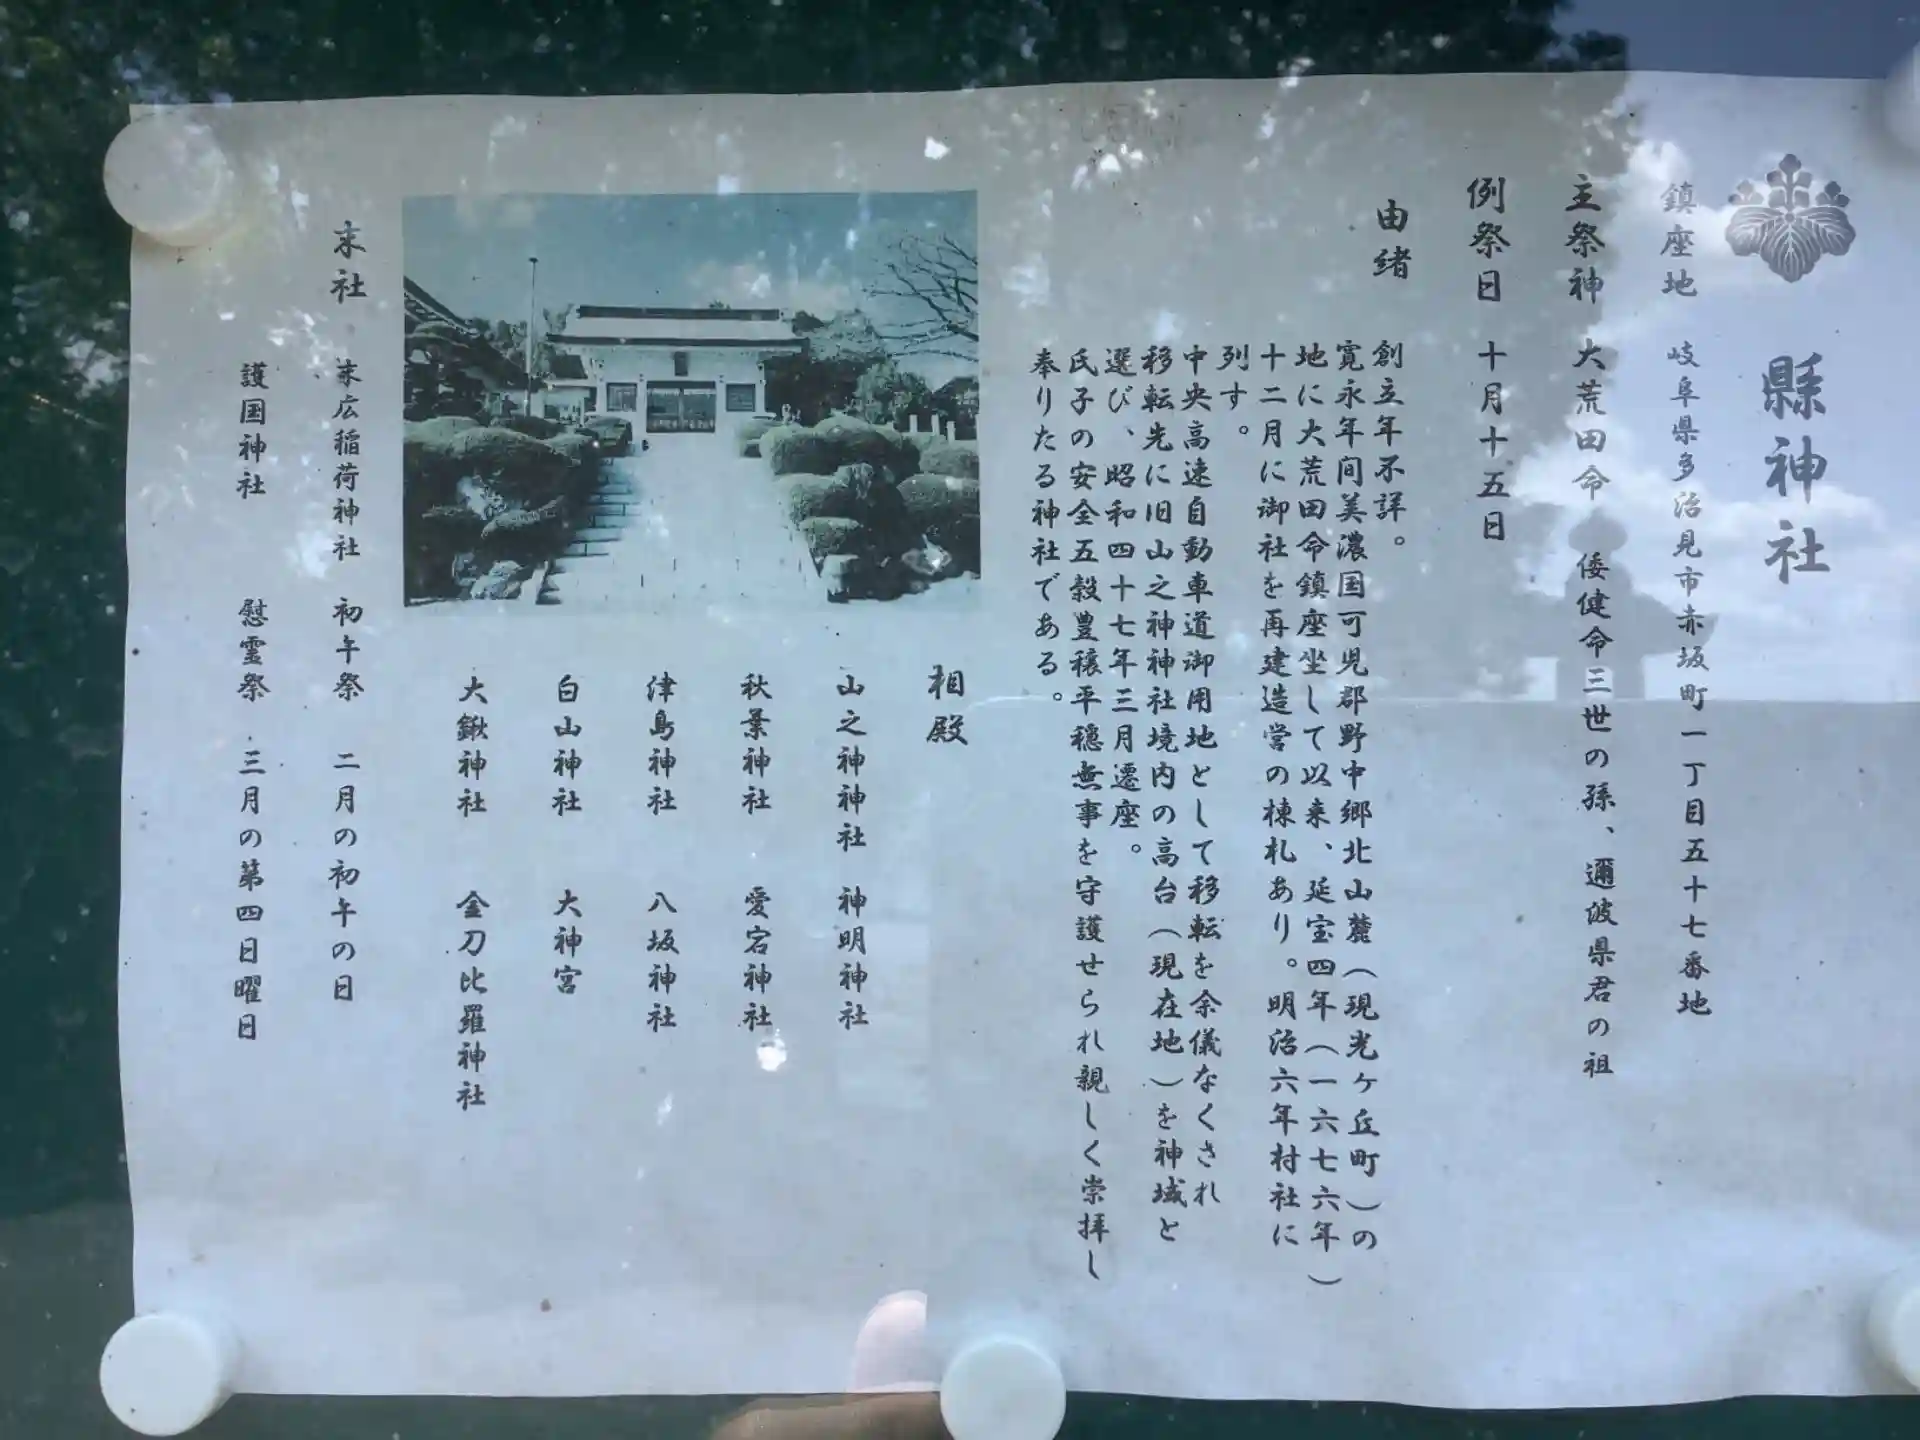 縣神社
鎮座地　岐阜県多治見市赤坂町一丁目五十七番地
主祭神　大荒田命　倭健命三世の孫、邇波県君の祖
例祭日　十月十五日
由緒　創立年不詳。
寛永年間美濃国可児郡野中郷北山麓（現光ヶ丘町）の
地に大荒田命鎮座坐して以来、延宝四年（一六七六年）
十二月に御社を再建造営の棟札あり。明治六年村社に
列す。
中央高速自動車道御用地として移転を余儀なくされ
移転先に旧山之神神社境内の高台（現在地）を神域と
選び、昭和四十七年三月遷座。
氏子の安全五穀豊穣平穏無事を守護せられ親しく崇拝し
奉りたる神社である。
相殿
山之神神社　神明神社
秋葉神社　愛宕神社
津島神社　八坂神社
白山神社　大神宮
大鍬神社　金刀比羅神社
末社　末広稲荷神社　初午祭　二月の初午の日
護国神社　慰霊祭　三月の第四日曜日